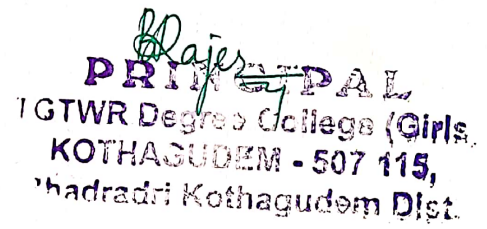 PRINCIPAL
TGTWR Degree College (Girls
KOTHAGUDEM - 507 115,
Bhadradri Kothagudem Dist.